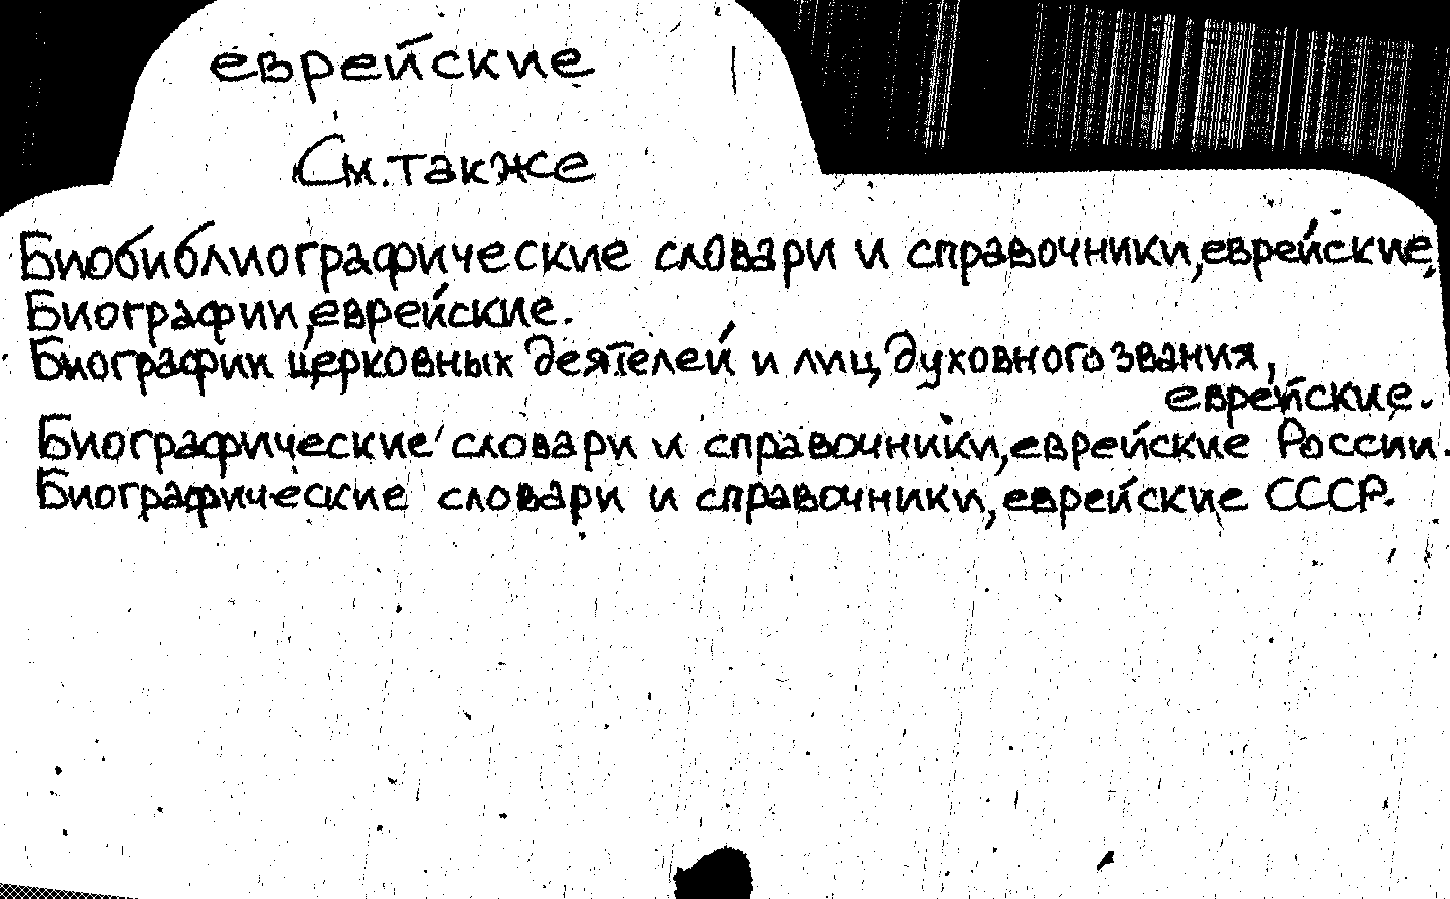 еврейские
См. также
Биобиблиографические словари и справочники, еврейские.
Биографии, еврейские.
Биографии церковных деятелей и лиц духовного звания,
еврейские.
Биографические словари и справочники, еврейские России.
Биографические словари и справочники, еврейские СССР.